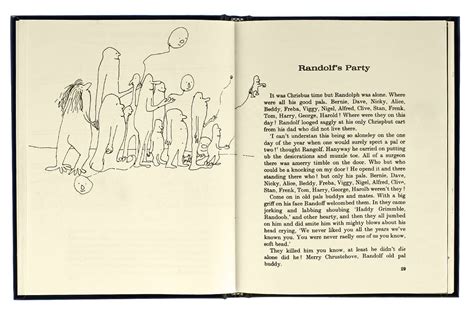 Randolf's Party
It was Chrisbus time but Randolph was alone. Where
were all his good pals. Bernie, Dave, Nicky, Alice,
Beddy, Freba, Viggy, Nigel, Alfred, Clive, Stan, Frenk,
Tom, Harry, George, Harold! Where were they on this
day? Randolf looged saggly at his only Chrispbut cart
from his dad who did not live there.
'I can't understan this being so aloneley on the one
day of the year when one would surely spect a pal or
two!' thought Rangolf. Hanyway he carried on putting
ub the desicrations and muzzle toe. All of a surgeon
there was amerry timble on the door. Who but who
could be a knocking on my door! He opend it and there
standing there who! but only his pals. Bernie, Dave,
Nicky, Alice, Beddy, Freba, Viggy, Nigel, Alfred, Clive,
Stan, Frenk, Tom, Harry, George, Harolb weren't they!
Come on in old pals buddys and mates. With a big
griff on his face Randolf welcombed them. In they came
jorking and labbing shoubing 'Haddy Grimmble,
Randoob.' and other hearty, and then they all jumbed
on him and did smite him with mighty blows about his
head crying, 'We never liked you all the years we've
known you. You were never raelly one of us you know,
soft head.'
They killed him you know, at least he didn't die
alone did he! Merry Chrustchove, Randolf old pal
buddy.
29